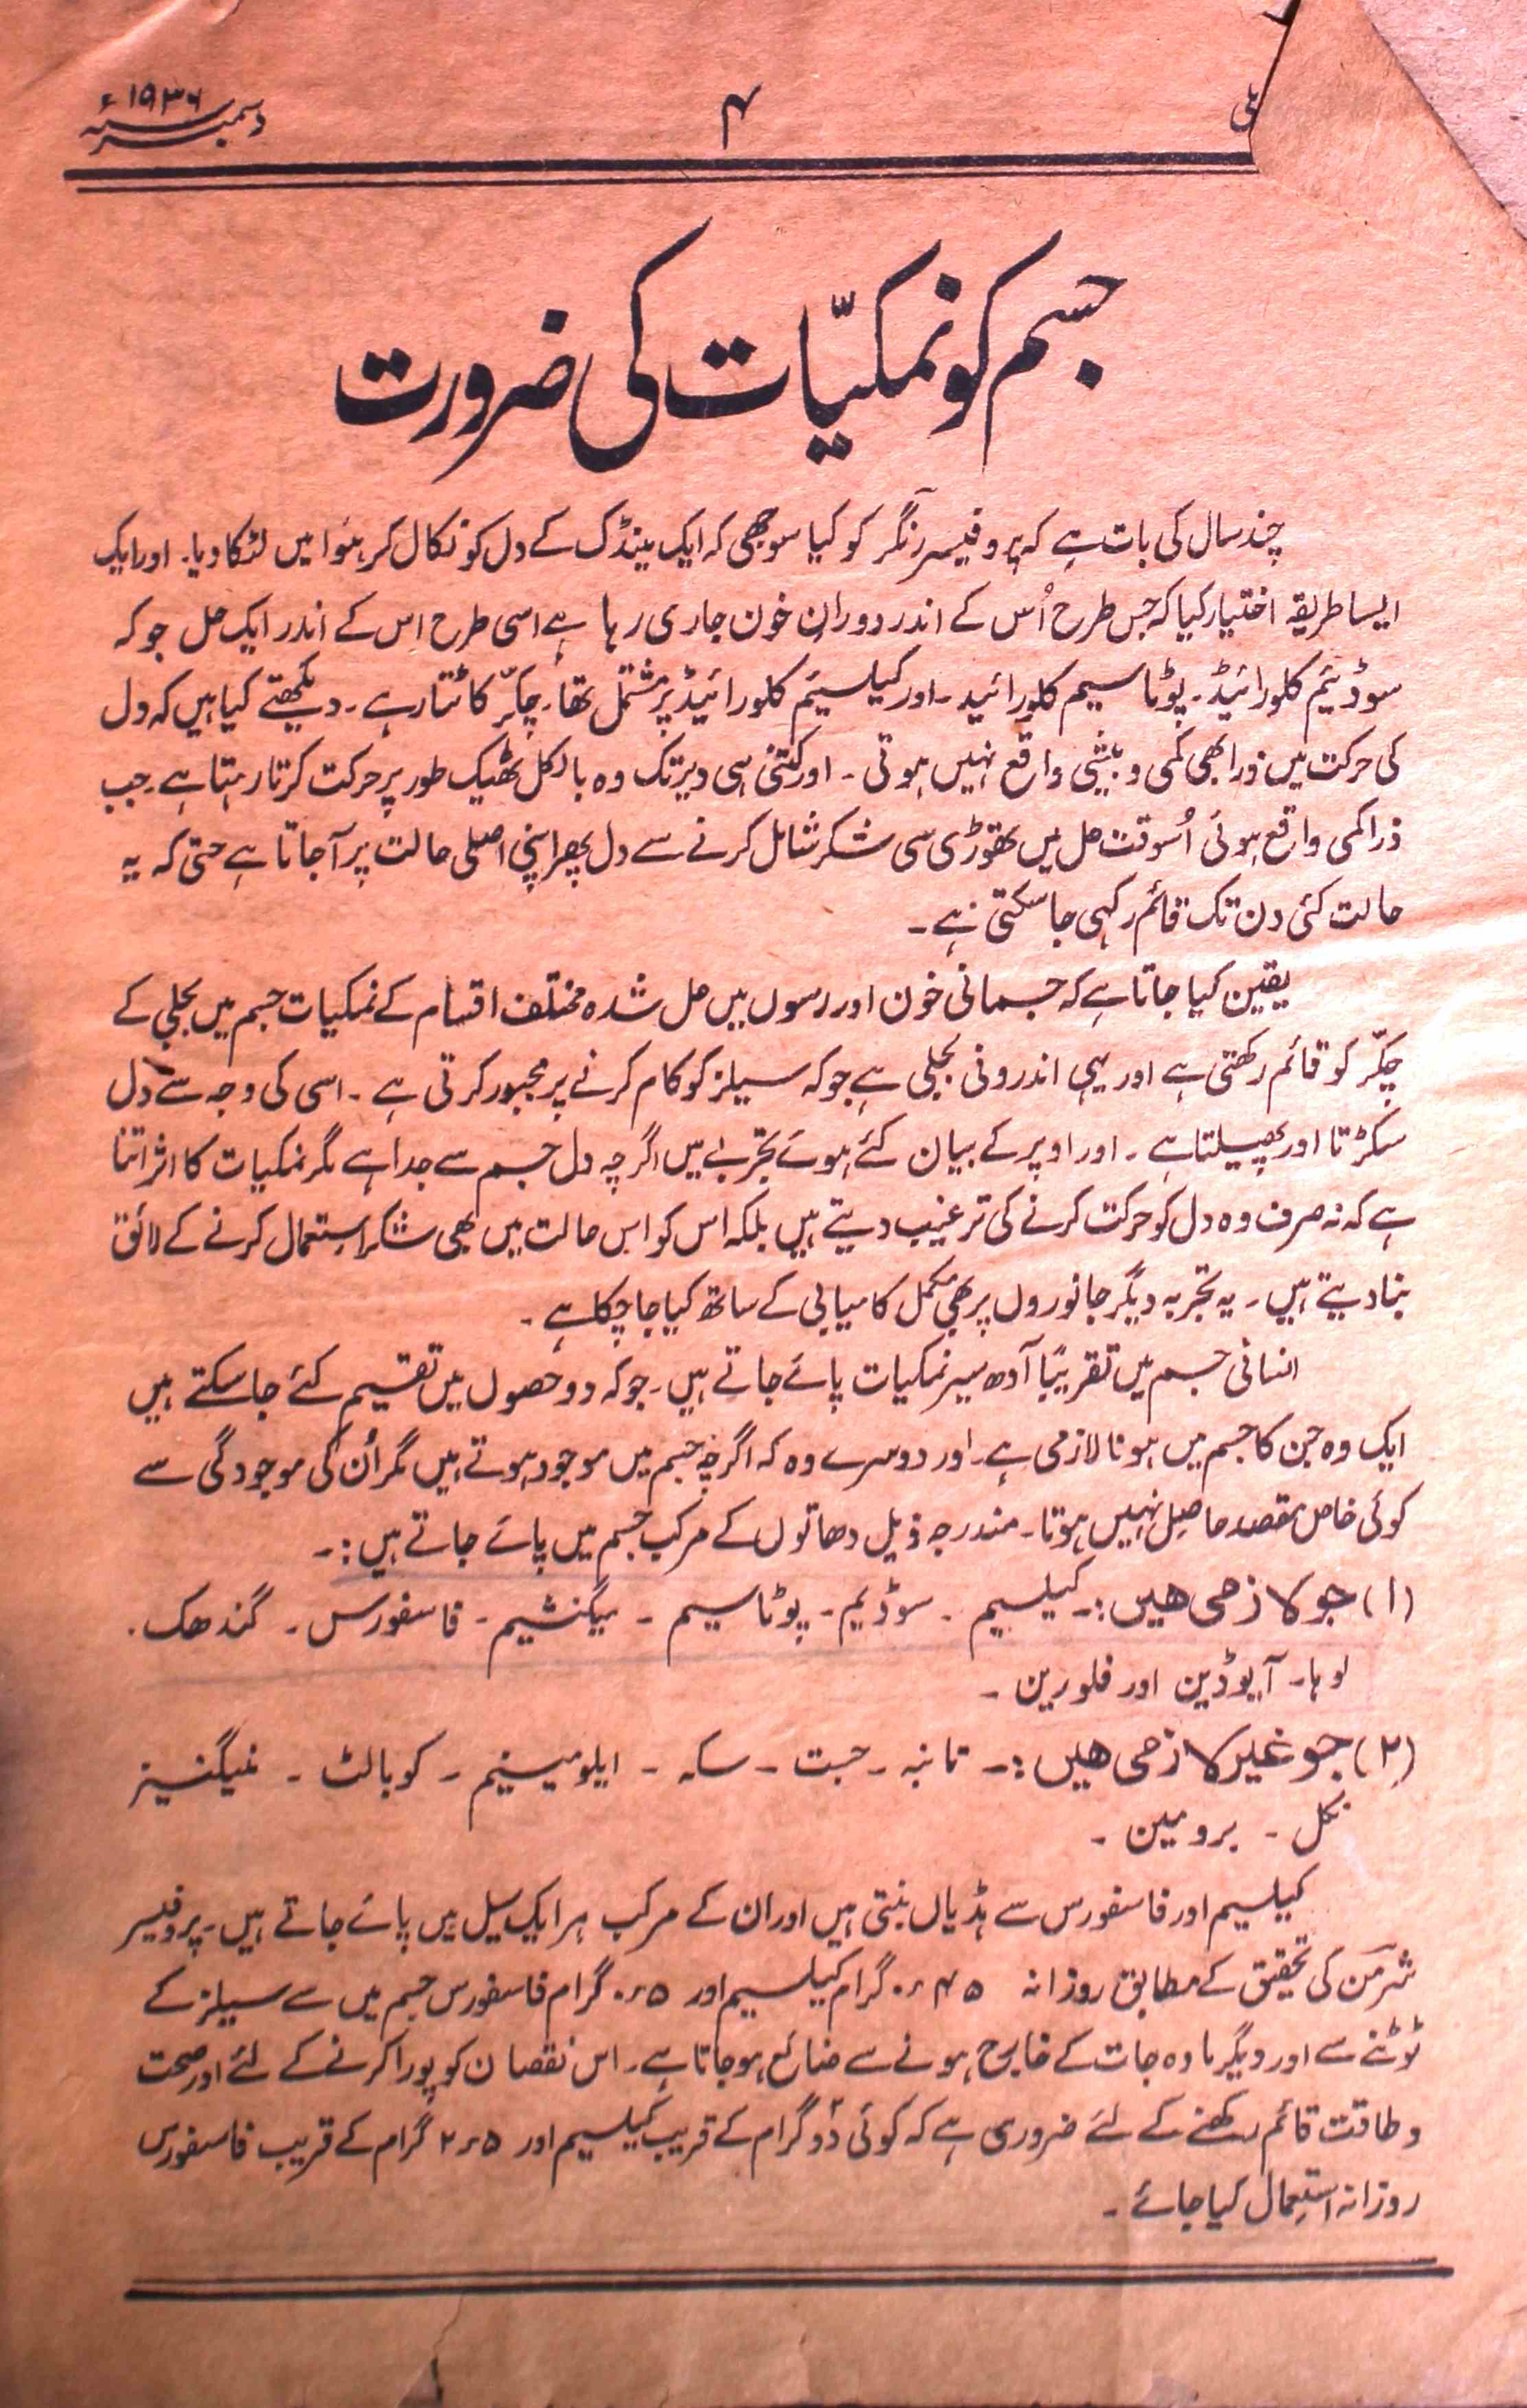 دسمبر سنہ ۱۹۳۶ء
۴
جسم کو نمکیّات کی ضرورت
چند سال کی بات ہے کہ پروفیسر رنگر کو کیا سوجھی کہ ایک مینڈک کے دل کو نکال کر ہَوا میں لٹکا دیا۔ اور ایک
ایسا طریقہ اختیار کیا کہ جس طرح اُس کے اندر دورانِ خون جاری رہا ہے اسی طرح اس کے اندر ایک حل جو کہ
سوڈیئم کلورائیڈ۔ پوٹاسیم کلورائید۔ اور کیلسیئم کلورائیڈ پر مشتمل تھا۔ چکّر کاٹتا رہے۔ دیکھتے کیا ہیں کہ دل
کی حرکت میں ذرا بھی کمی و بیشی واقع نہیں ہوتی۔ اور کتنی ہی دیر تک وہ بالکل ٹھیک طور پر حرکت کرتا رہتا ہے۔ جب
ذرا کمی واقع ہوئی اُسوقت حل میں تھوڑی سی شکر شامل کرنے سے دل پھر اپنی اصلی حالت پر آ جاتا ہے حتیٰ کہ یہ
حالت کئی دن تک قائم رکھی جا سکتی ہے۔
یقین کیا جاتا ہے کہ جسمانی خون اور رسوں میں حل شدہ مختلف اقسام کے نمکیات جسم میں بجلی کے
چکّر کو قائم رکھتی ہے اور یہی اندرونی بجلی ہے جو کہ سیلز کو کام کرنے پر مجبور کرتی ہے۔ اسی کی وجہ سے دل
سکڑتا اور پھیلتا ہے۔ اور اوپر کے بیان کئے ہوئے تجربے میں اگرچہ دل جسم سے جدا ہے مگر نمکیات کا اثر اتنا
ہے کہ نہ صرف وہ دل کو حرکت کرنے کی ترغیب دیتے ہیں بلکہ اس کو اس حالت میں بھی شکر استعمال کرنے کے لائق
بنا دیتے ہیں۔ یہ تجربہ دیگر جانوروں پر بھی مکمل کامیابی کے ساتھ کیا جا چکا ہے۔
انسانی جسم میں تقریباً آدھ سیر نمکیات پائے جاتے ہیں۔ جو کہ دو حصوں میں تقسیم کئے جا سکتے ہیں
ایک وہ جن کا جسم میں ہونا لازمی ہے۔ اور دوسرے وہ کہ اگرچہ جسم میں موجود ہوتے ہیں مگر اُن کی موجودگی سے
کوئی خاص مقصد حاصل نہیں ہوتا۔ مندرجہ ذیل دھاتوں کے مرکب جسم میں پائے جاتے ہیں:۔
(۱) جو لازمی ھیں:۔ کیلسیم ۔ سوڈیم۔ پوٹاسیم ۔ میگنشیم ۔ فاسفورس ۔ گندھک ۔
لوہا۔ آیوڈین اور فلورین ۔
(۲) جو غیر لازمی ھیں:۔ تانبہ ۔ جست ۔ سکہ ۔ ایلومینیم ۔ کوبالٹ ۔ میگنیز
نکل ۔ برومین ۔
کیلسیم اور فاسفورس سے ہڈیاں بنتی ہیں اور ان کے مرکب ہر ایک سیل میں پائے جاتے ہیں۔ پروفیسر
شرمن کی تحقیق کے مطابق روزانہ ۰۶۴۵ گرام کیلسیم اور ۰۶۵ گرام فاسفورس جسم میں سے سیلز کے
ٹوٹنے سے اور دیگر مادہ جات کے خارج ہونے سے ضائع ہو جاتا ہے۔ اس نقصان کو پورا کرنے کے لئے اور صحت
و طاقت قائم رکھنے کے لئے ضروری ہے کہ کوئی دو گرام کے قریب کیلسیم اور ۲۶۵ گرام کے قریب فاسفورس
روزانہ استعمال کیا جائے ۔